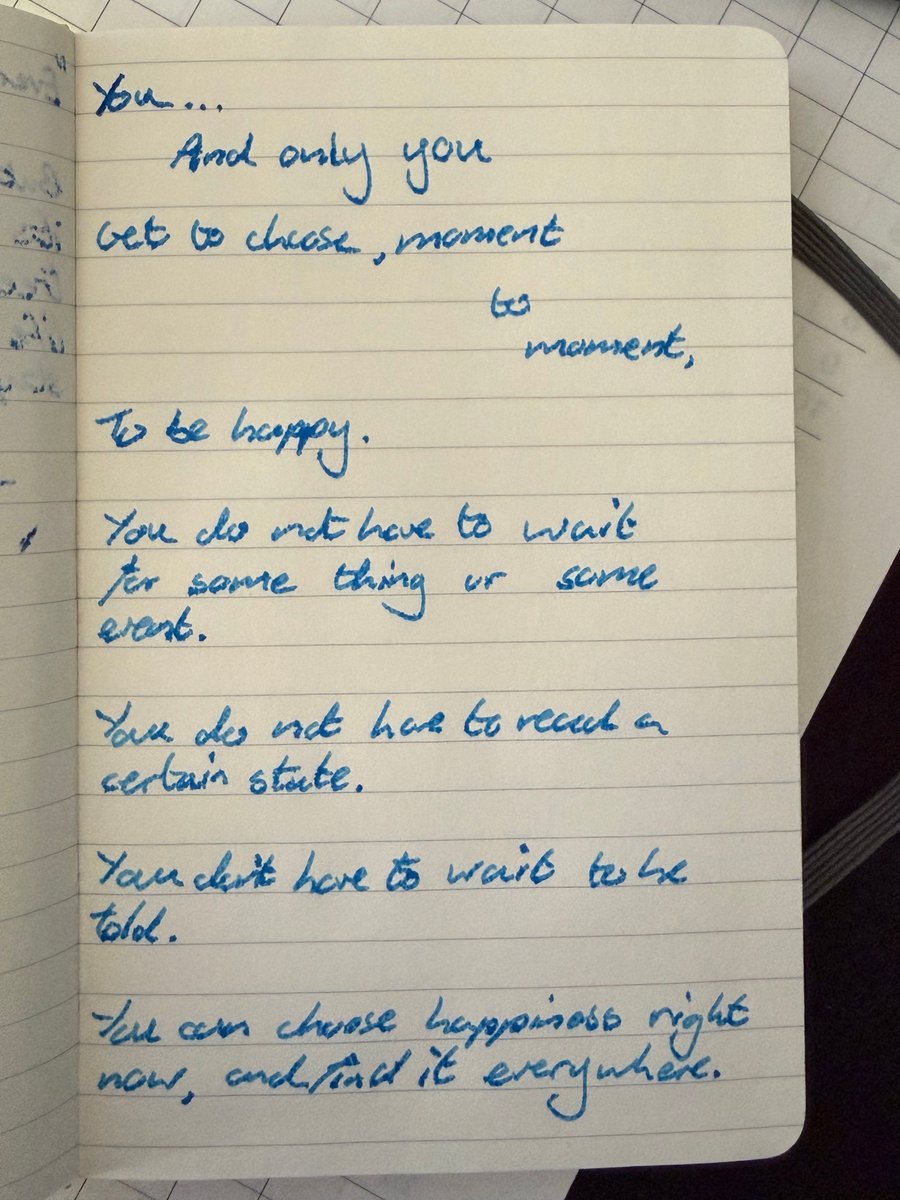 You...
And only you
Get to choose, moment
to
moment,
To be happy.
You do not have to wait
for some thing or some
event.
You do not have to reach a
certain state.
You don't have to wait to be
told.
You can choose happiness right
now, and find it everywhere.